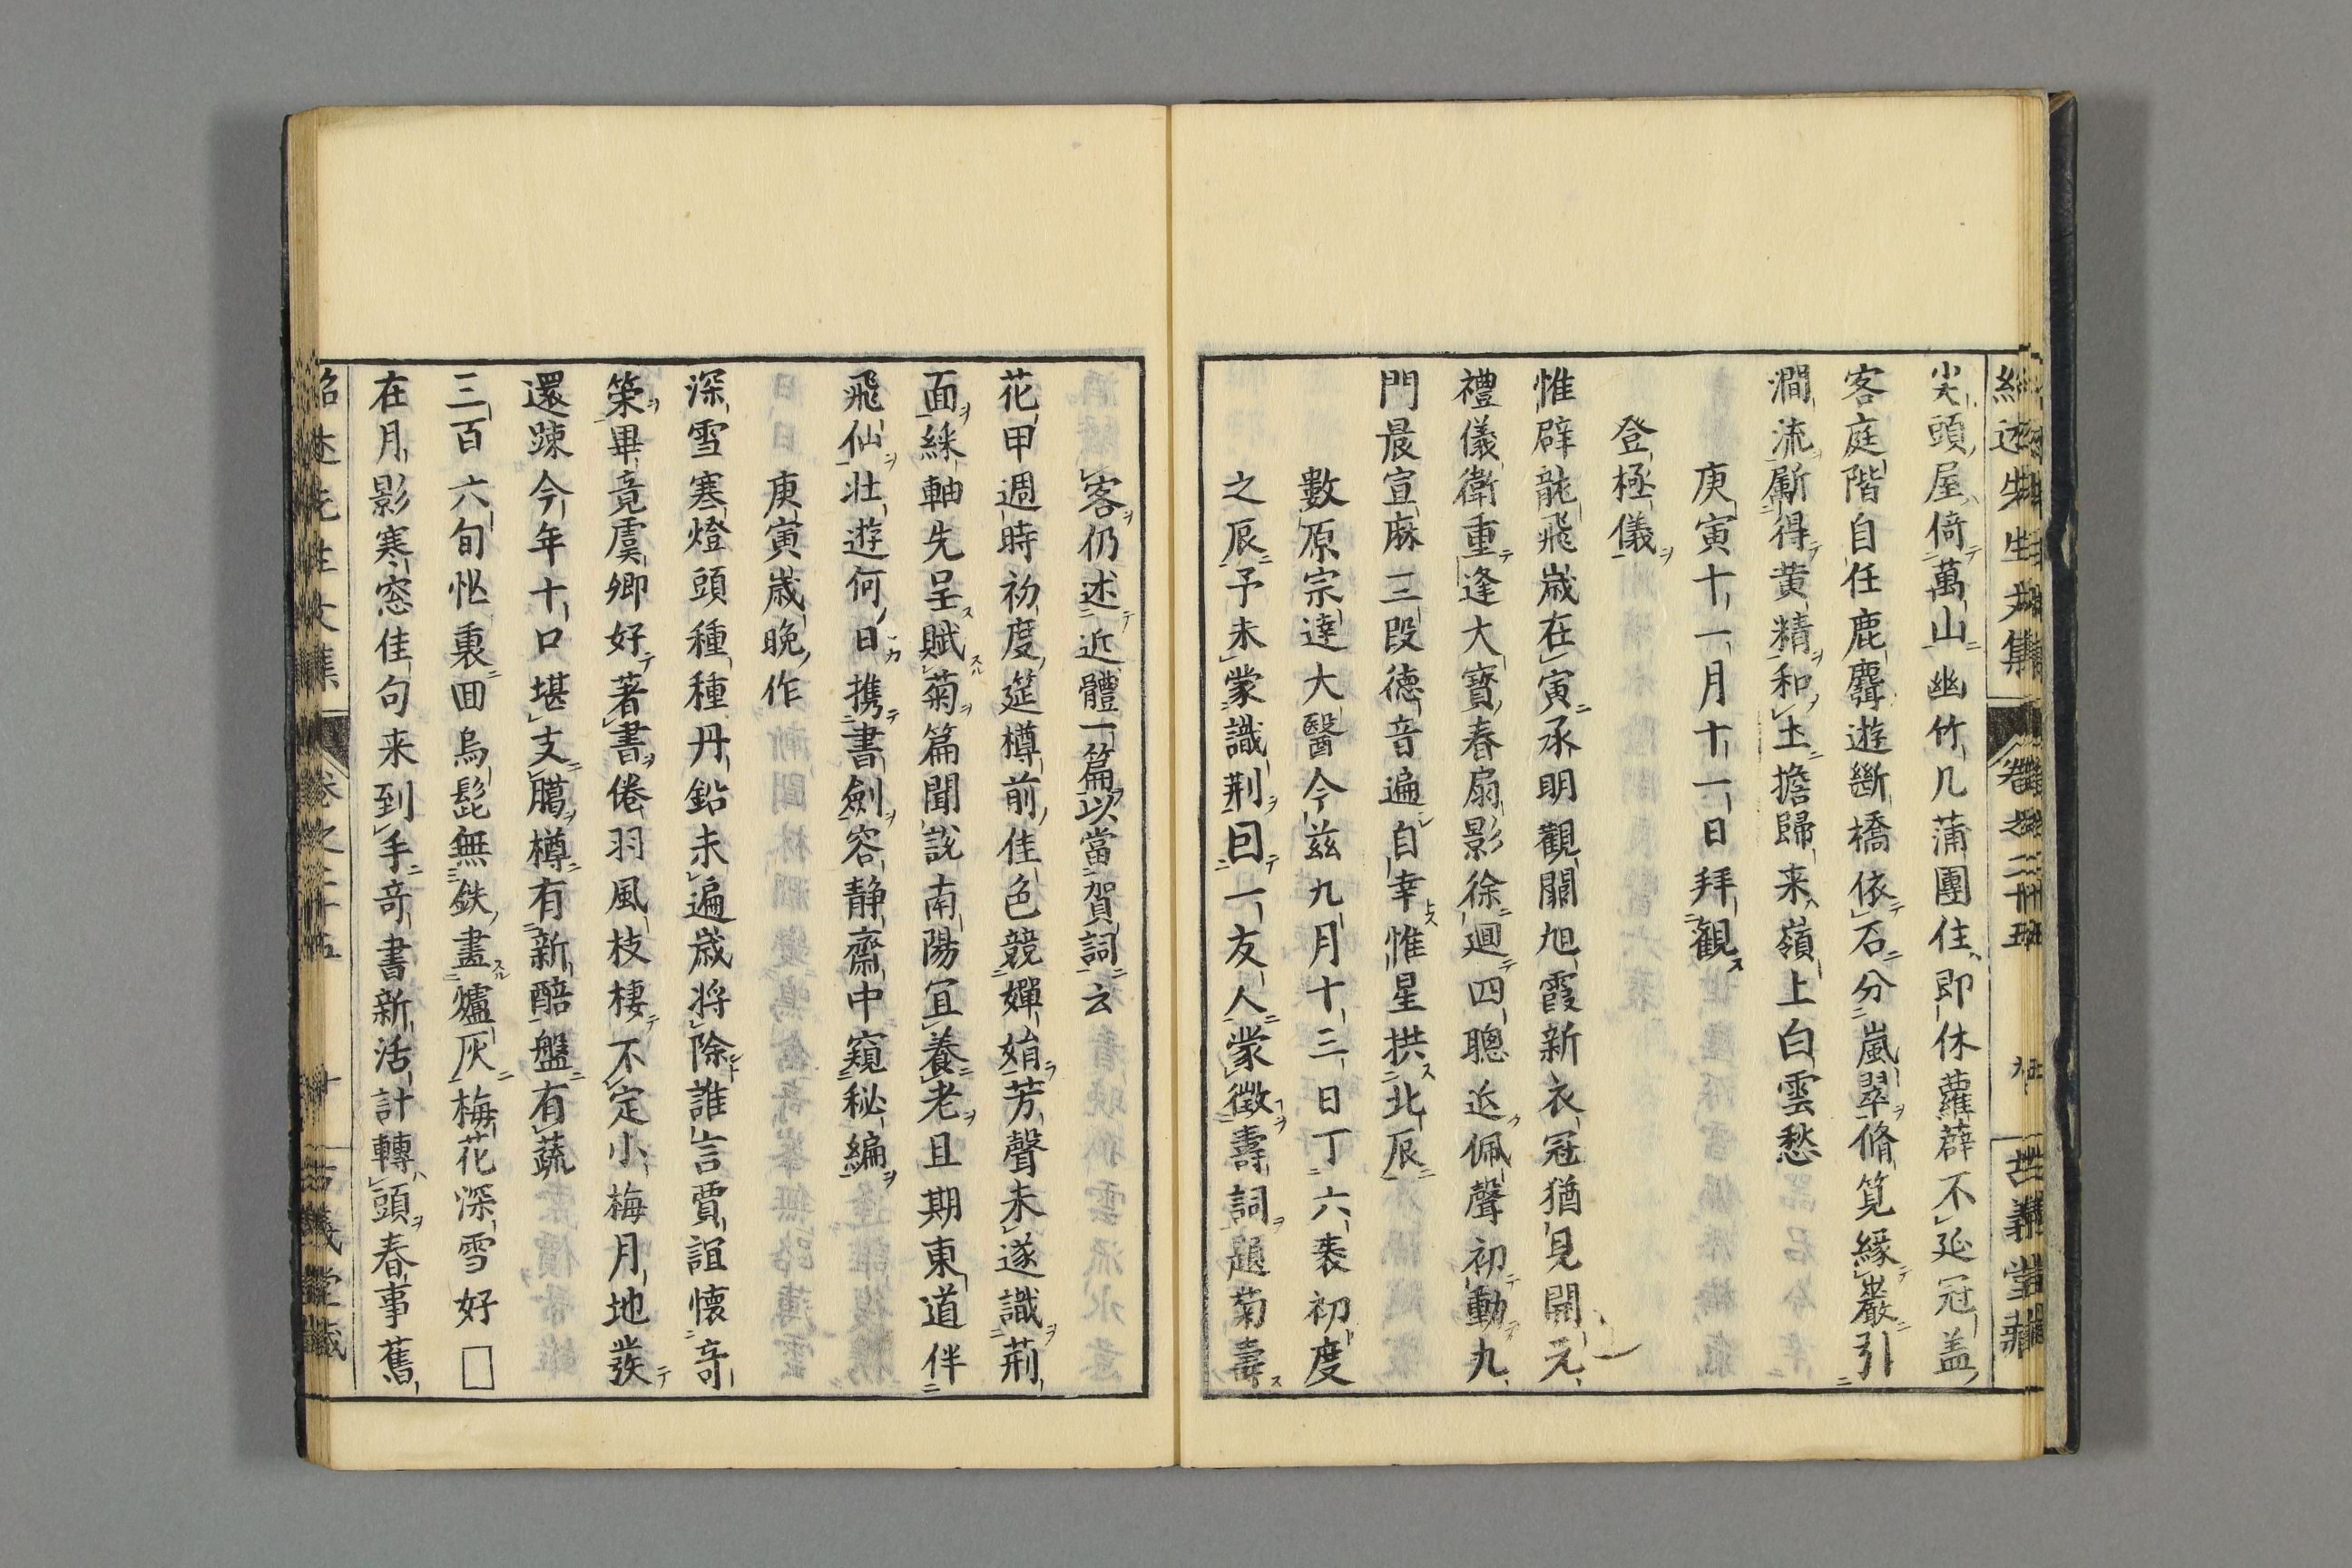 尖頭屋倚萬山幽竹几蒲團住即休蘿薜不延冠盖
客庭階自任鹿麛遊斷橋依石分嵐翠脩筧緣巖引
澗流斸得黄精和土擔歸来嶺上白雲愁
庚寅十一月十一日拜觀
登極儀
惟辟龍飛歳在寅承明觀闕旭霞新衣冠猶見開元
禮儀衛重逢大寳春扇影徐廻四聰近佩聲初動九
門晨宣麻三段德音遍自幸惟星拱北辰
數原宗達大醫今兹九月十三日丁六袠初度
之辰予未蒙識荆因一友人蒙徴壽詞題菊壽
客仍述近體一篇以當賀詞云
花甲週時初度筵樽前佳色競嬋娟芳聲未遂識荆
面綵軸先呈賦菊篇聞說南陽宜養老且期東道伴
飛仙壮遊何日携書劍容静齋中窺秘編
庚寅歳晩作
深雪寒燈頭種種丹鉛未遍歳将除誰言賈誼懷奇
策畢竟虞卿好著書倦羽風枝棲不定小梅月地發
還踈今年十口堪支臈樽有新醅盤有蔬
三百六旬忙裏囬烏髭無鉄畫爐灰梅花深雪好□
在月影寒窓佳句来到手竒書新活計轉頭春事舊
紹述先生文集 卷之二十五 十 古義堂藏